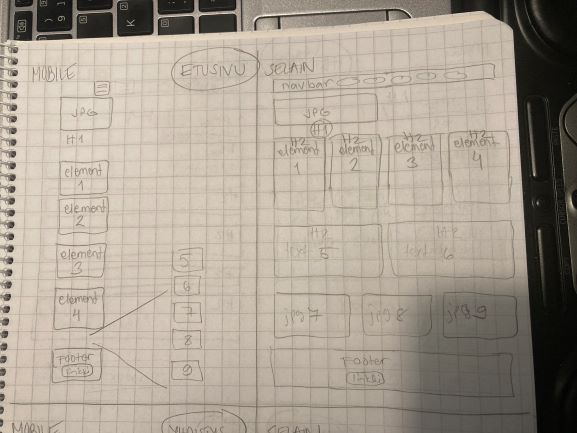 MOBILE
ETUSIVU
SELAIN
navbar
JPG
H1
element
1
element
2
element
3
element
4
Footer
5
6
7
8
9
JPG
H1
H2
element
1
H2
element
2
H2
element
3
H2
element
4
H2
text
5
H2
text
6
jpg 7
jpg 8
jpg 9
Footer
MOBILE
SELAIN